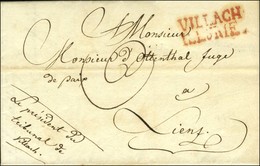 VILLACH
ILLYRIE.
A Monsieur
Monsieur d'Ottenthal Juge
de paix
a
Lienz
Le président du
tribunal de